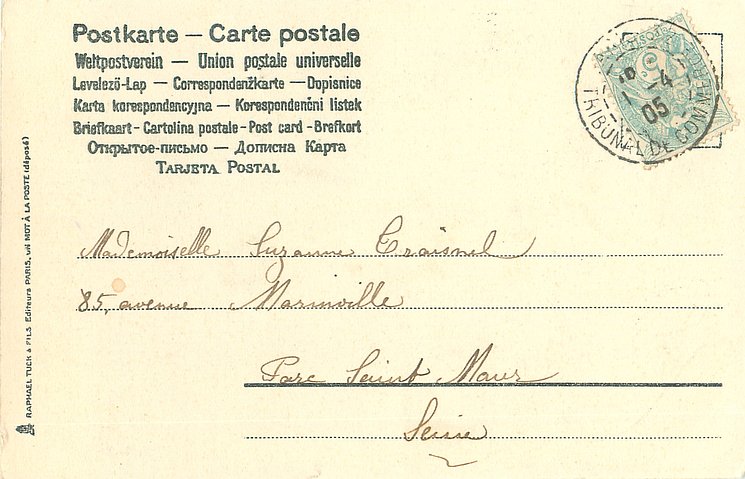 Postkarte — Carte postale
Weltpostverein — Union postale universelle
Levelező-Lap — Correspondenžkarte — Dopisnice
Karta korespondencyjna — Korespondenčni listek
Briefkaart - Cartolina postale - Post card - Brefkort
Открытое-письмо — Дописна Карта
TARJETA POSTAL
4
05
TRIBUNAL DE COMMERCE
Mademoiselle Suzanne Craisnel
85, avenue Marinville
Parc Saint Maur
Seine
RAPHAEL TUCK & FILS Editeurs PARIS, VIII MOT À LA POSTE (déposé)